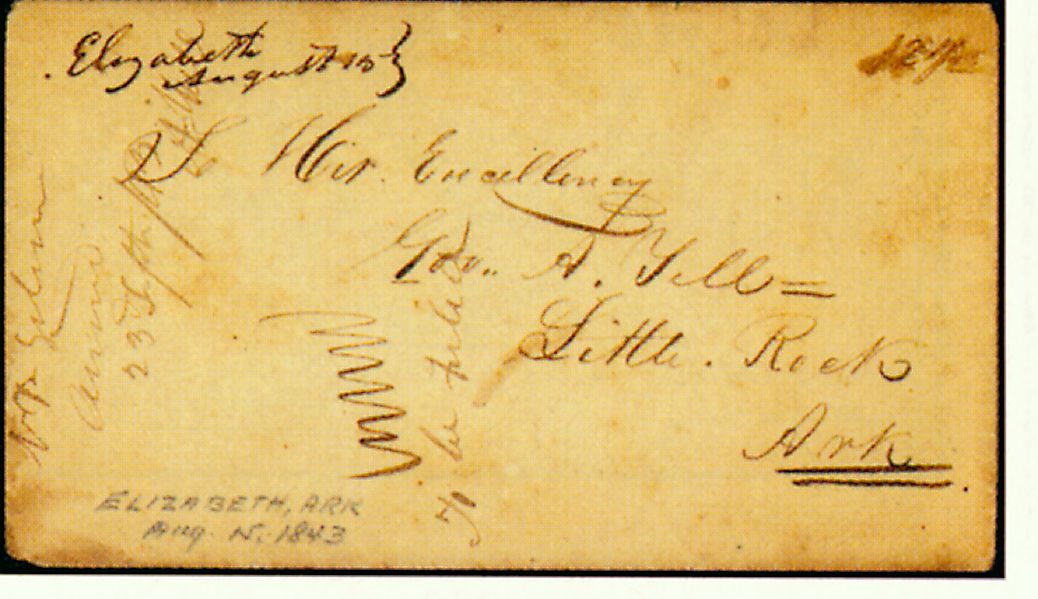 Elizabeth
August 15
12 1/2
To His Excellency
Gov. A. Yell =
Little. Rock
Ark.
to be filed
23 Septr
ELIZABETH, ARK
Aug. 15. 1843